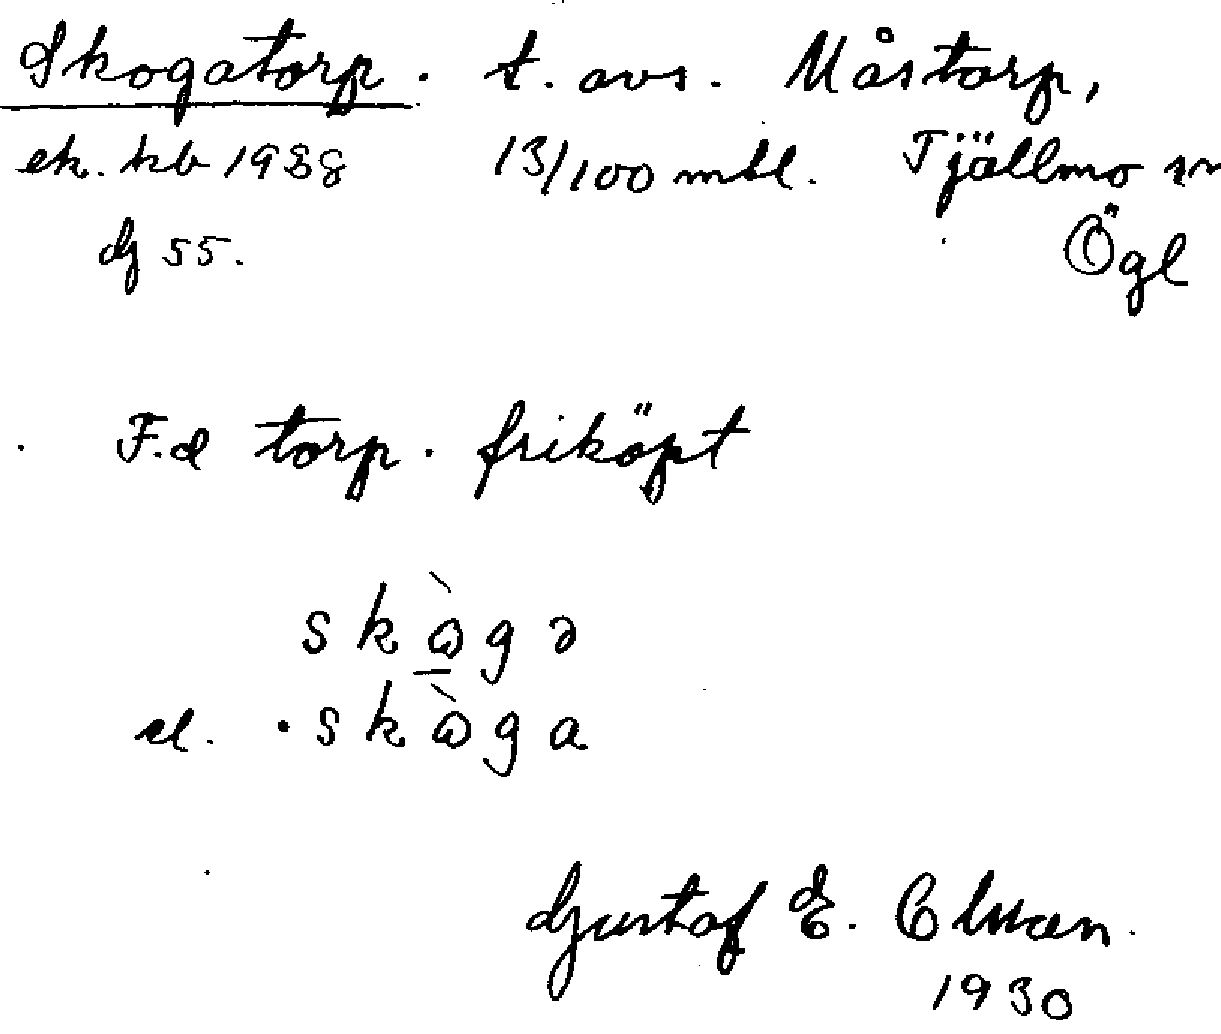 Skogatorp. t. avs. Måstorp,
ek. kb 1938 13/100 mtl. Tjällmo sn
dg 55. Ögl
F.d torp. friköpt
skògə
el. skòga
Gustaf E. Clman.
1930